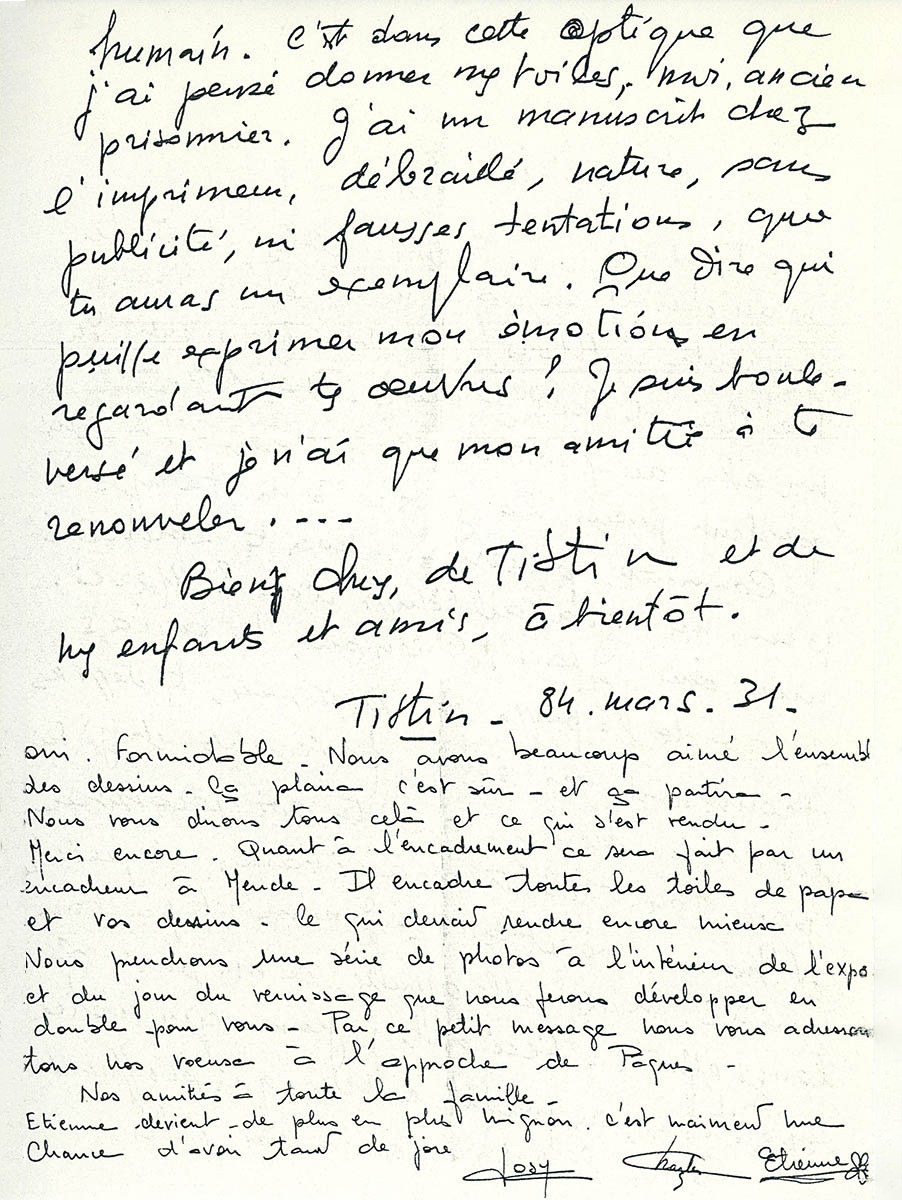 humain. C'est dans cette optique que
j'ai pensé donner mes toiles, moi, ancien
prisonnier. J'ai un manuscrit chez
l'imprimeur, débraillé, nature, sans
publicité, ni fausses tentations, que
tu auras un exemplaire. Que dire qui
puisse exprimer mon émotion en
regardant tes oeuvres ! Je suis boule-
versé et je n'ai que mon amitié à te
renouveler. ---
Biens chers, de Tistin et de
mes enfants et amis, à bientôt.
Tistin - 84. mars. 31.
oui. Formidable. Nous avons beaucoup aimé l'ensembl
des dessins. Ça plaira c'est sûr - et ça partira -
Nous vous dirons tous celà et ce qui s'est vendu -
Merci encore. Quant à l'encadrement ce sera fait par un
encadreur à Mende - Il encadre toutes les toiles de papa
et vos dessins - Ce qui devrait rendre encore mieux
Nous prendrons une série de photos à l'intérieur de l'expo
et du jour du vernissage que nous ferons développer en
double pour vous - Par ce petit message nous vous adressons
tous nos voeux à l'approche de Pâques -
Nos amitiés à toute la famille -
Etienne devient de plus en plus mignon. c'est vraiment une
Chance d'avoir tant de joie
Josy Charles Etienne